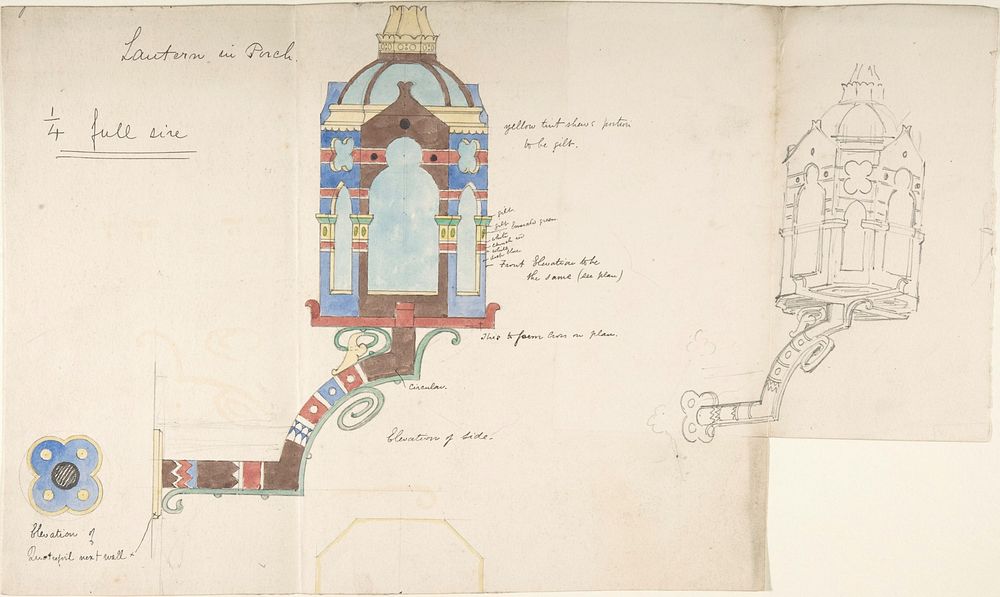 Lantern in Porch.
1/4 full size
yellow tint shews portion
to be gilt.
gilt
gilt emerald green
white
white
deep blue
Front Elevation to be
the same (see plan)
This to form Cross on plan.
Circular.
Elevation of Side.
Elevation of
Quatrefoil next wall